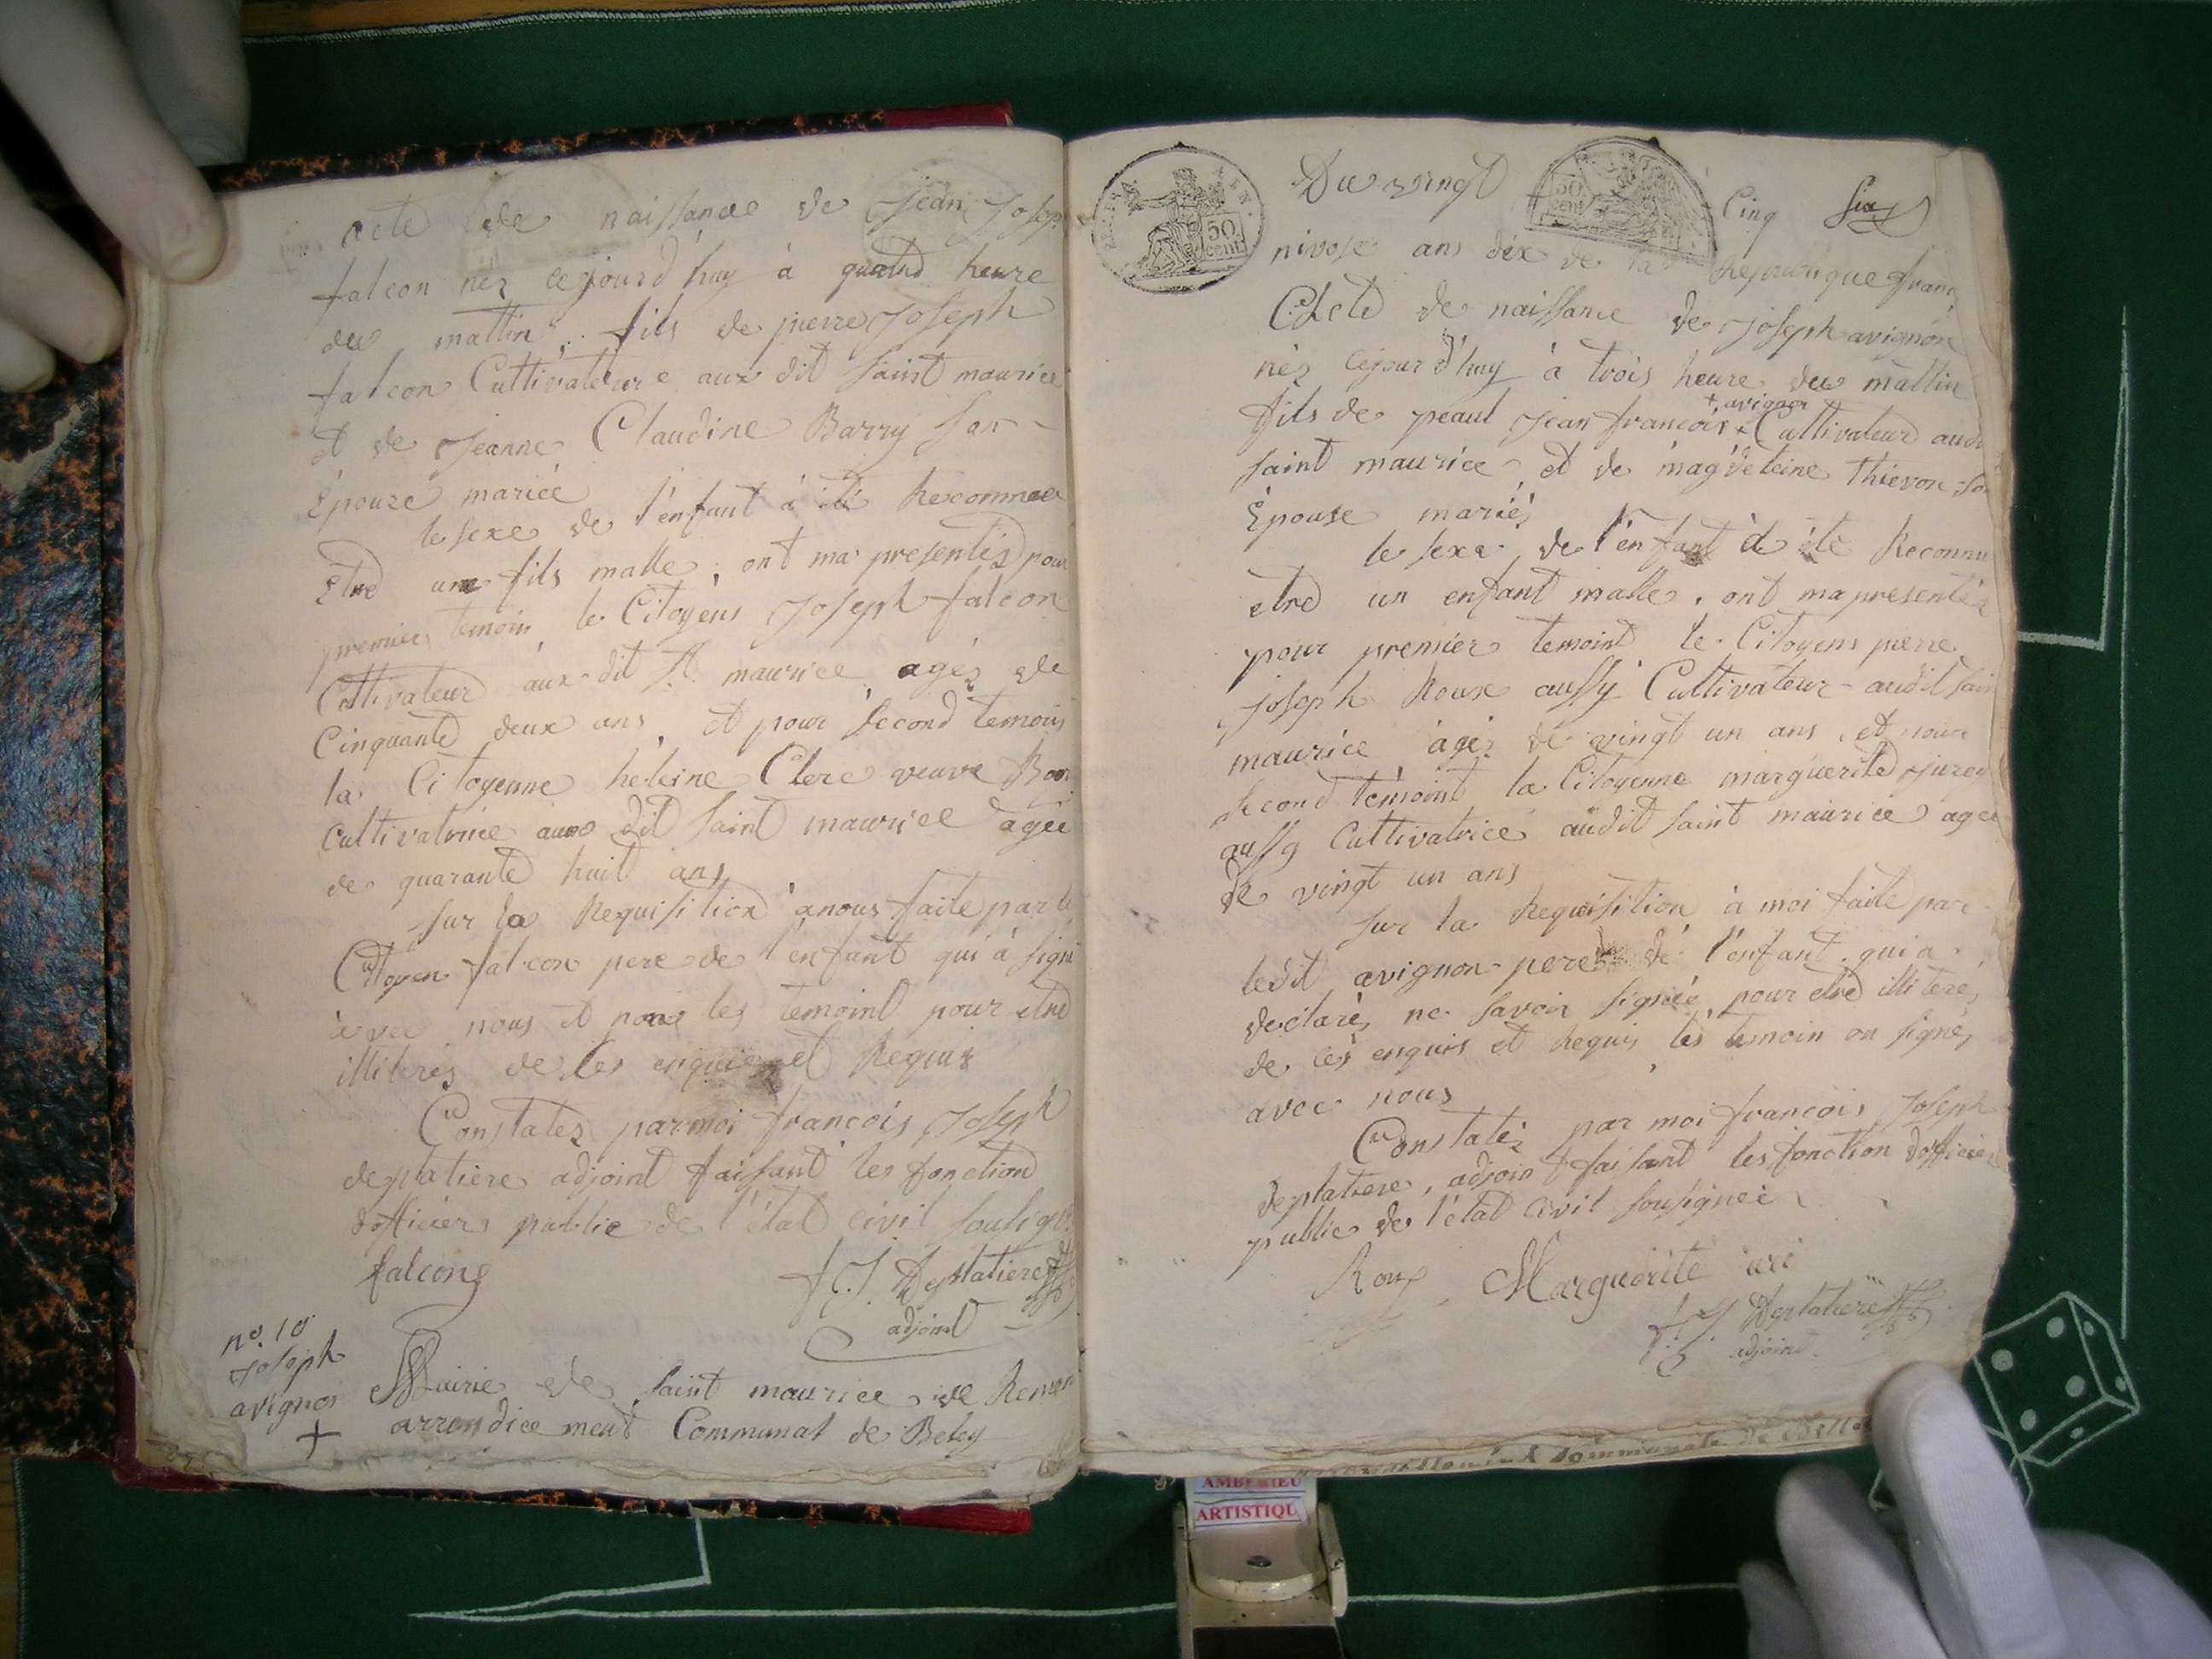 acte de naissance de jean Josep
falcon nez cejourd'huy à quatre heure
du mattin. fils de pierre Joseph
falcon Cultivateure aux dit saint maurice
et de Jeanne Claudine Barry son
épouze mariée
le sexe de l'enfant à été Reconnue
Etre une fils malle, ont ma presentéz pour
premier temoin le Citoyens Joseph falcon
Cultivateur aux dit St maurice agéz de
Cinquante deux ans, et pour second temoins
la Citoyenne héleine Clerc veuve
Cultivatrice aux dit saint maurice agée
de quarante huit ans
sur la Requisition anous faite par le
Citoyen falcon pere de l'enfant qui à signé
avec nous et non les temoint pour etre
illiterés de les enquis et Requis
Constatez parmoi francois Joseph
deplatiere adjoint faisant les fonction
dofficier public de l'état civil sousigné
falcong
f. J. Deplatiere
adjoint
n.º 10
Joseph
avignon
+
Mairie de saint maurice de Remen
arrondice ment Communal de Beley
50 cent
Du vingt Cinq six
50 cent
nivose ans dix de la Republique franc
Acte de naissance de Joseph avignon
néz cejourd'huy à trois heure du mattin
+ avignon
fils de peaul Jean francois + Cultivateur audi
saint maurice et de mag'deleine Thievon son
Épouse mariéz
le sexe de l'enfant à été Reconnu
etre un enfant malle, ont mapresentéz
pour premier temoint le Citoyens pierre
joseph Roux aussy Cultivateur audit sain
maurice agéz de vingt un ans, et pour
second temoint la Citoyenne marguerite Juren
aussy Cultivatrice audit saint maurice agée
de vingt un ans
sur la Requisition à moi faite par
ledit avignon pere de l'enfant qui a
declaréz ne savoir signée pour etre illiteré,
de ces enquis et Requis, les temoin on signés
avec nous
Constatéz par moi francois Joseph
deplatiere, adjoint faisant les fonction dofficier
public de l'état Civil sousignée
Roux Marguerite uri
f J Deplatiere
adjoint
AMBERIEU
ARTISTIQU